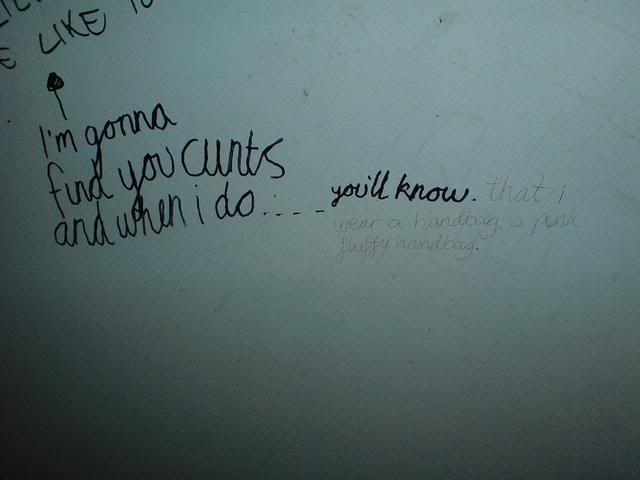 LIKE TO
I'm gonna
find you cunts
and when i do..... you'll know. that i
wear a handbag. a pink
fluffy handbag.